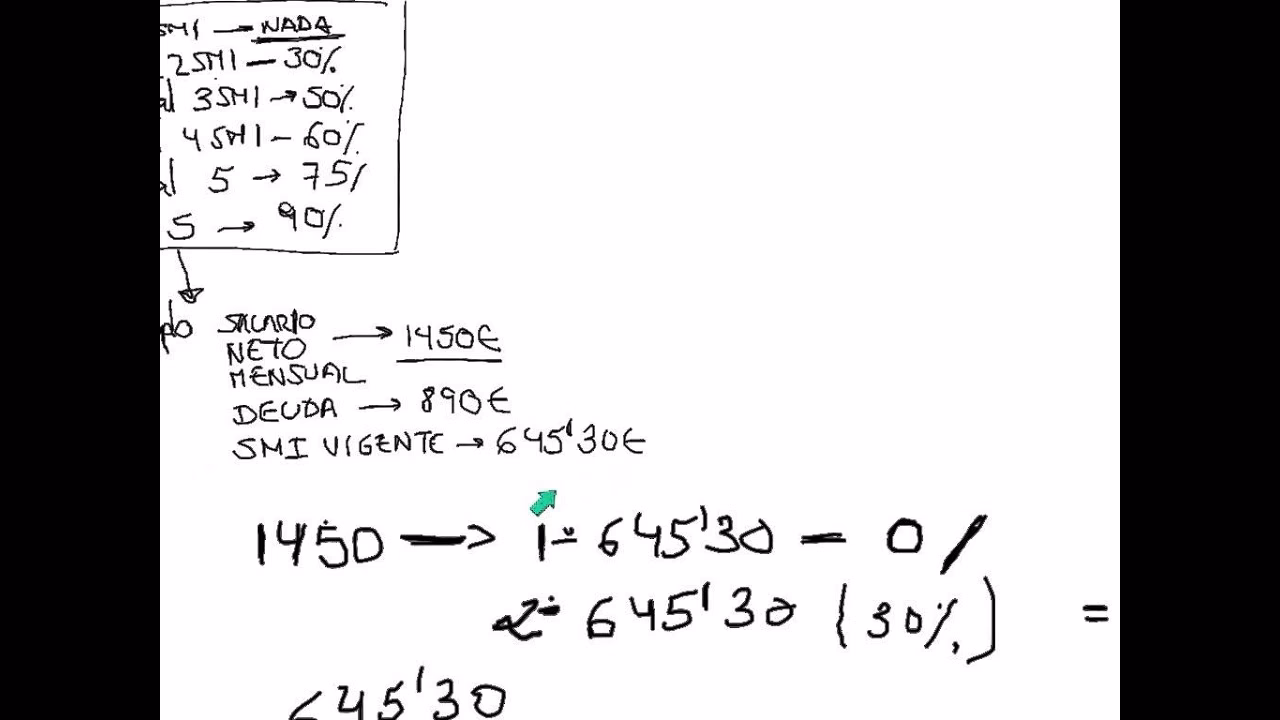 SMI → NADA
2SMI — 30%
al 3SMI → 50%
4SMI — 60%
al 5 → 75%
5 → 90%
SALARIO
NETO → 1450€
MENSUAL
DEUDA → 890€
SMI VIGENTE → 645'30€
1450 → 1º 645'30 — 0%
2º 645'30 (30%) =
645'30